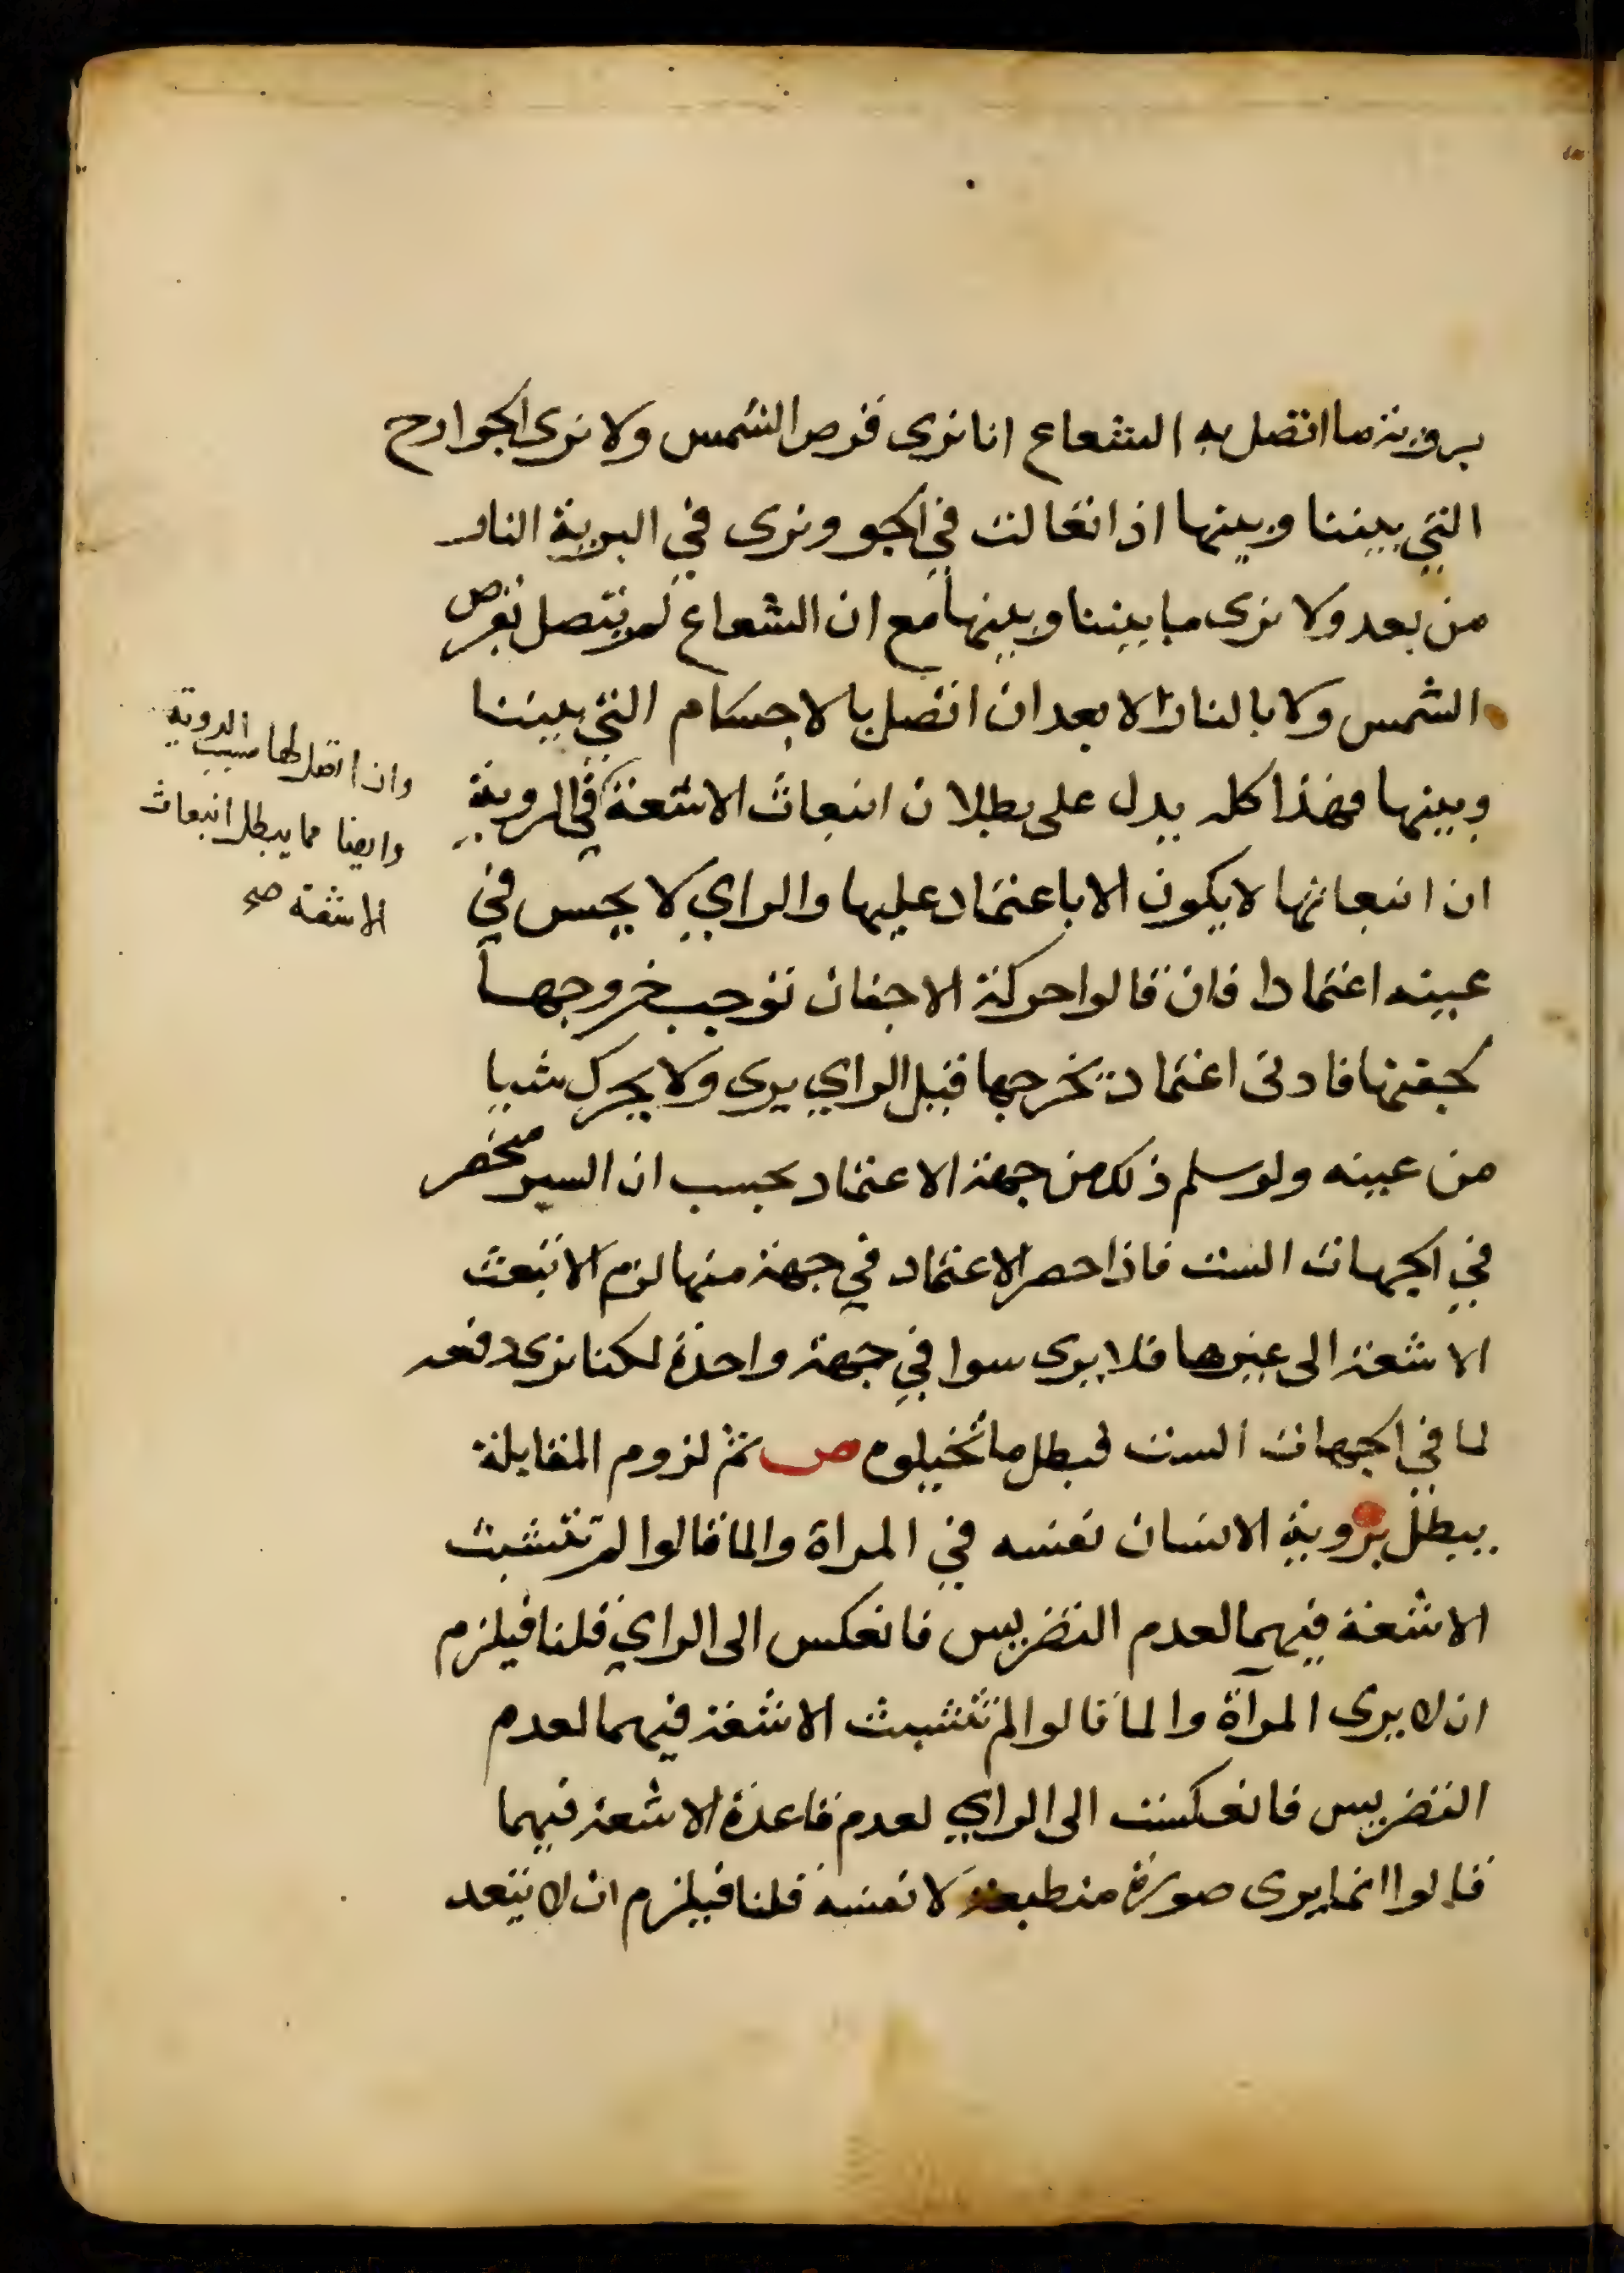 بروية ما اتصل به الشعاع انا نرى قرص الشمس ولا نرى الجوارح
التي بيننا وبينها اذا تغالت في الجو ونرى في البرية النار
من بعد ولا نرى ما بيننا وبينها مع ان الشعاع لم يتصل بقرص
الشمس ولا بالنار الا بعد ان اتصل بالاجسام التي بيننا
وبينها فهذا كله يدل على بطلان انبعاث الاشعة في الروية
ان انبعاثها لا يكون الا باعتماد عليها والراي لا يحس في
عينه اعتمادا فان قالوا حركة الاجفان توجب خروجها
لخفتها فادنى اعتماد يخرجها قيل الراي يرى ولا يحرك شيا
من عينه ولو سلم ذلك من جهة الاعتماد بحسب ان السير منحصر
في الجهات الست فاذا حصر الاعتماد في جهة منها لزم الا تنبعث
الاشعة الى غيرها فلا يرى سوا في جهة واحدة لكنا نرى دفعه
لما في الجهات الست فبطل ما تخيلوه ص ثم لزوم المقابلة
يبطل بروية الانسان نفسه في المراة والما قالوا لم تتشبث
الاشعة فيهما لعدم التضريس فانعكس الى الراي قلنا فيلزم
ان لا يرى المرآة والما قالوا لم تتشبث الاشعة فيهما لعدم
التضريس فانعكست الى الراي لعدم قاعدة الاشعة فيهما
قالوا انما يرى صورة منطبعة لا نفسه قلنا فيلزم ان لا يتعد
وان اتصالها سبب الروية
وايضا مما يبطل انبعاث
الاشعة صح